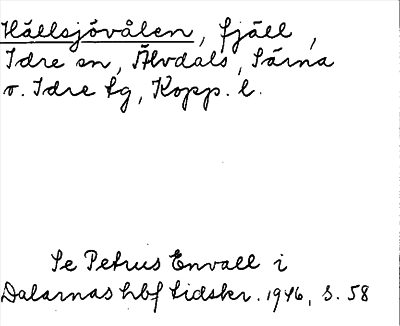 Hällsjövålen, fjäll,
Idre sn, Älvdals, Särna
o. Idre tg, Kopp. l.
Se Petrus Envall i
Dalarnas hbf tidskr. 1946, s. 58